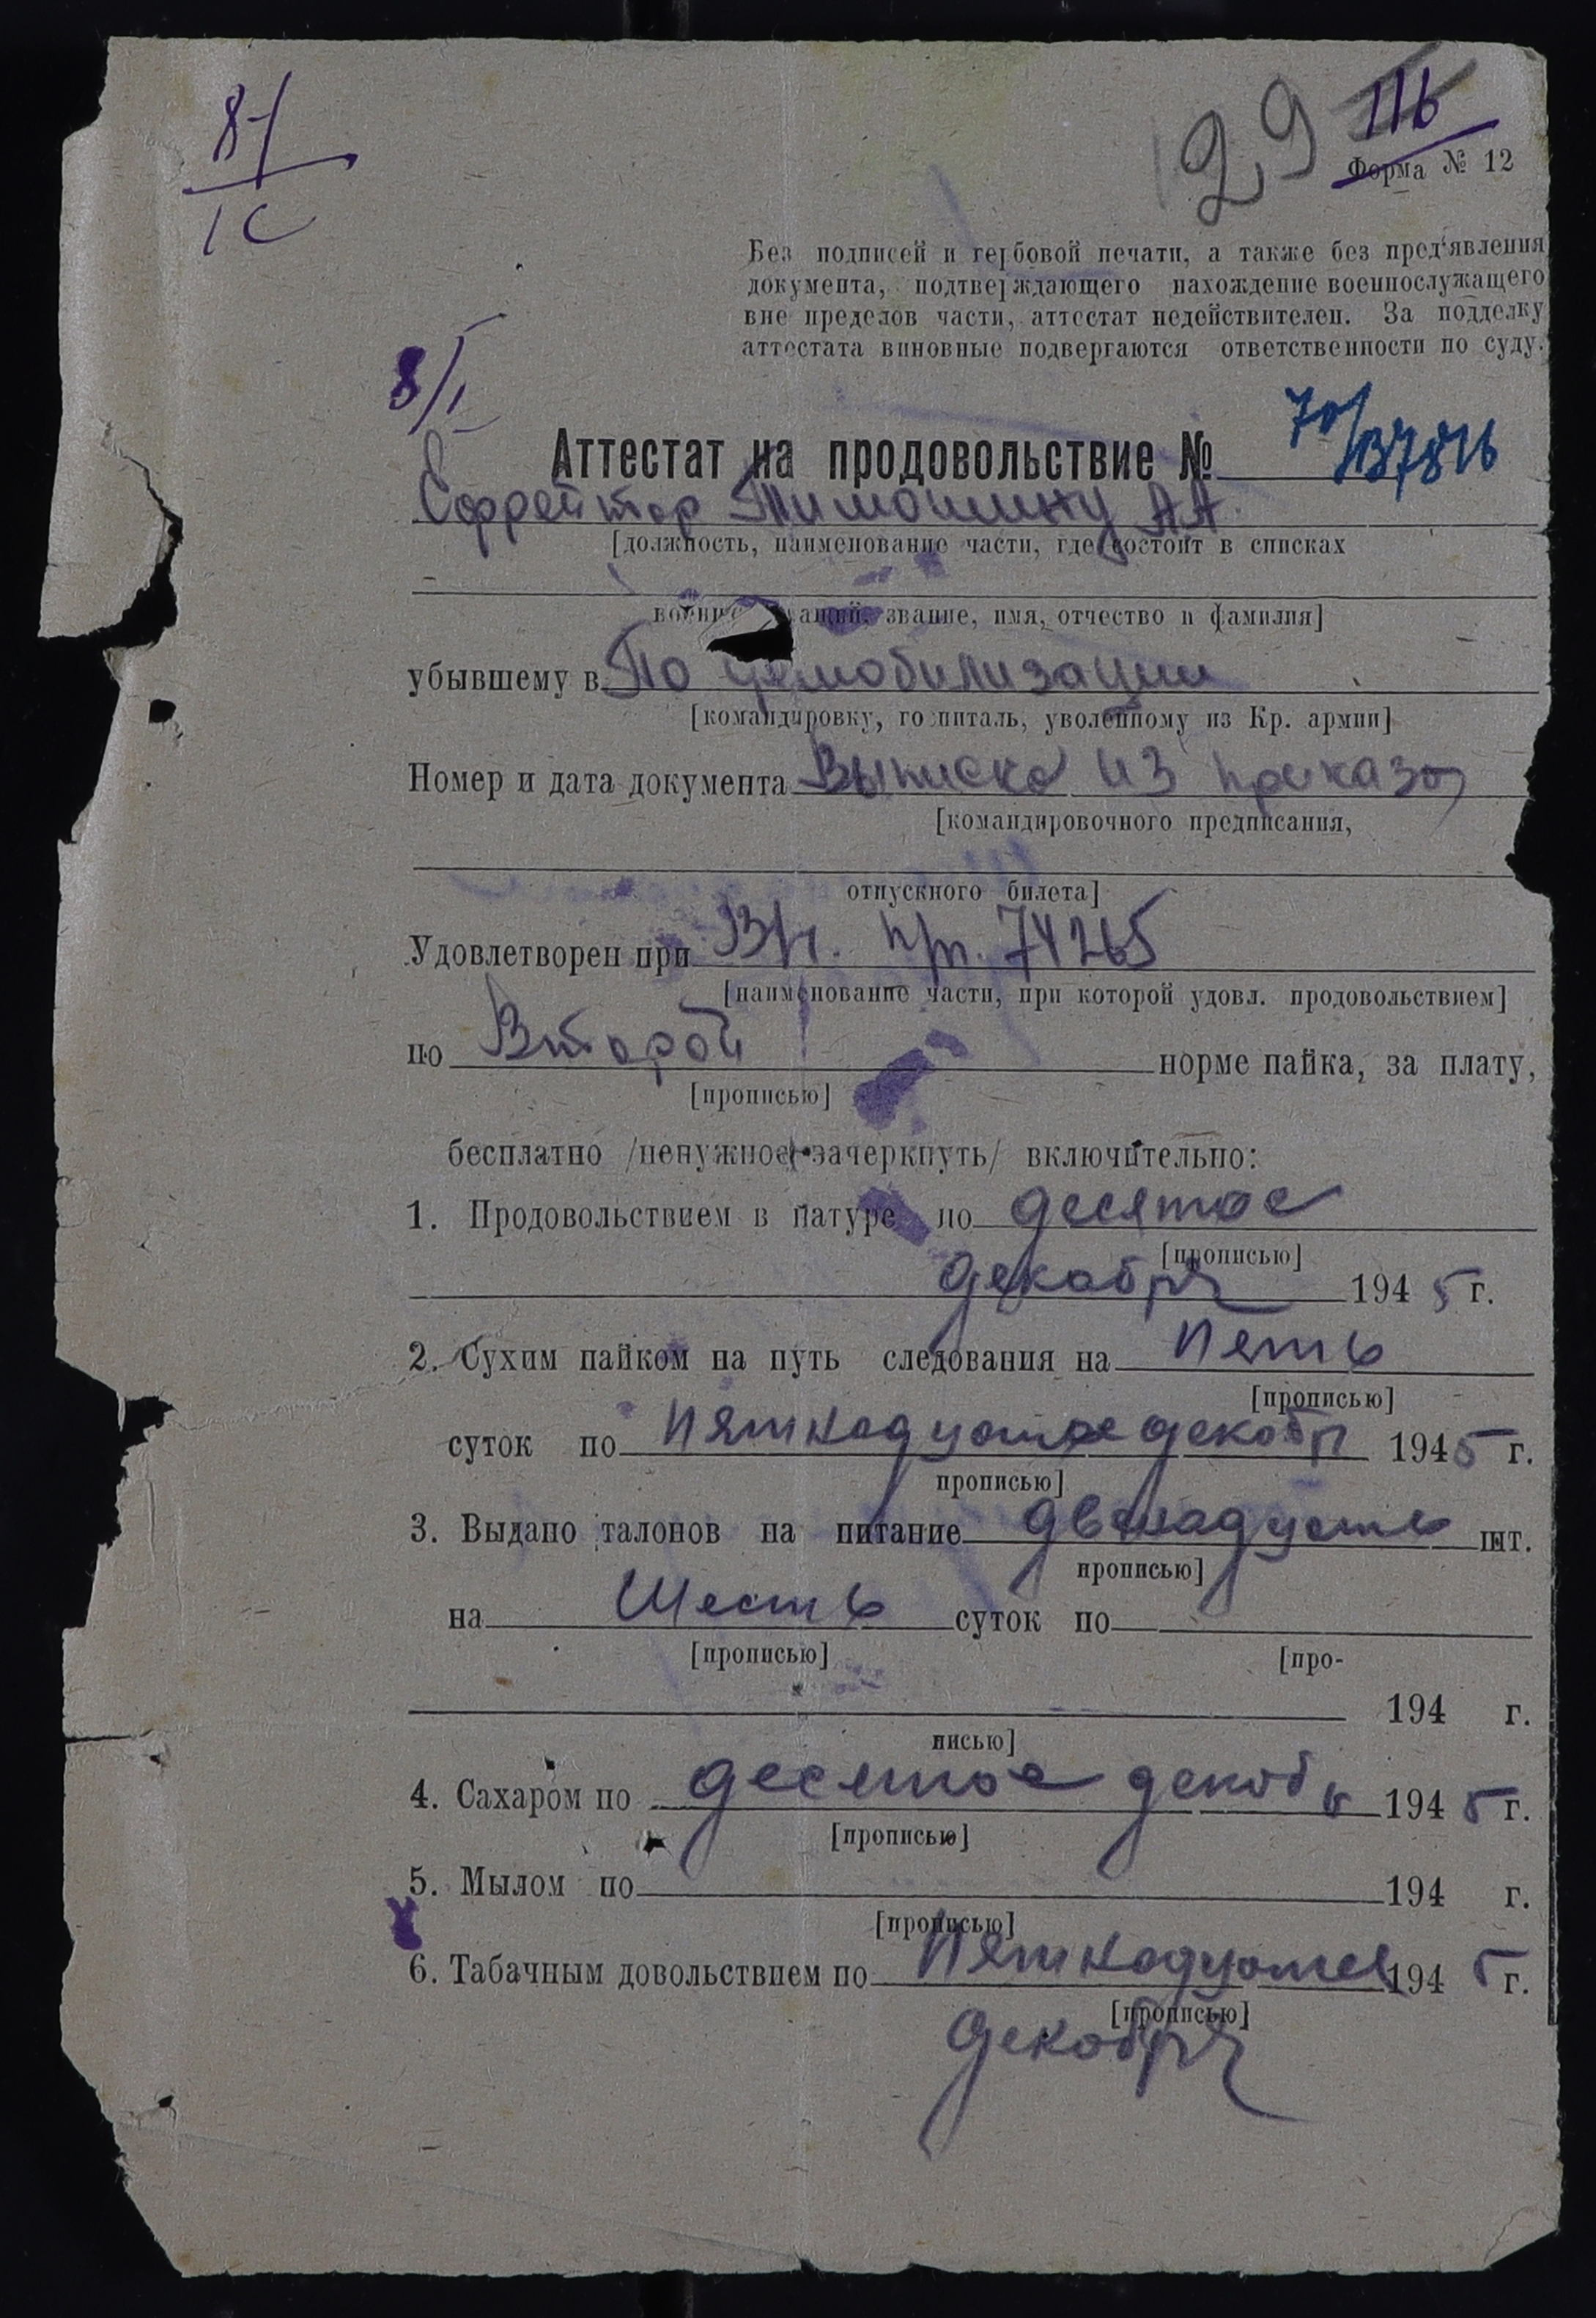 8/I
IC
29 116
Форма № 12
Без подписей и гербовой печати, а также без пред'явления
документа, подтверждающего нахождение военнослужащего
вне пределов части, аттестат недействителен. За подделку
аттестата виновные подвергаются ответственности по суду.
8/I
Аттестат на продовольствие №
Ефрейтор Тимошину АА.
[должность, наименование части, где состоит в списках
звание, имя, отчество и фамилия]
убывшему в По демобилизации
[командировку, госпиталь, уволенному из Кр. армии]
Номер и дата документа Выписка из приказа
[командировочного предписания,
отпускного билета]
Удовлетворен при В/ч. п/п. 74265
[наименование части, при которой удовл. продовольствием]
по Второй норме пайка, за плату,
[прописью]
бесплатно /ненужное зачеркнуть/ включительно:
1. Продовольствием в натуре по десятое
[прописью]
декабря 1945 г.
2. Сухим пайком на путь следования на Пять
[прописью]
суток по Пятнадцатое декабр 1945 г.
прописью]
3. Выдано талонов на питание двенадцать шт.
прописью]
на Шесть суток по
[прописью] [про-
194 г.
писью]
4. Сахаром по десятое декаб 1945 г.
[прописью]
5. Мылом по 194 г.
[прописью]
6. Табачным довольствием по Пятнадцатое 1945 г.
[прописью]
декабря